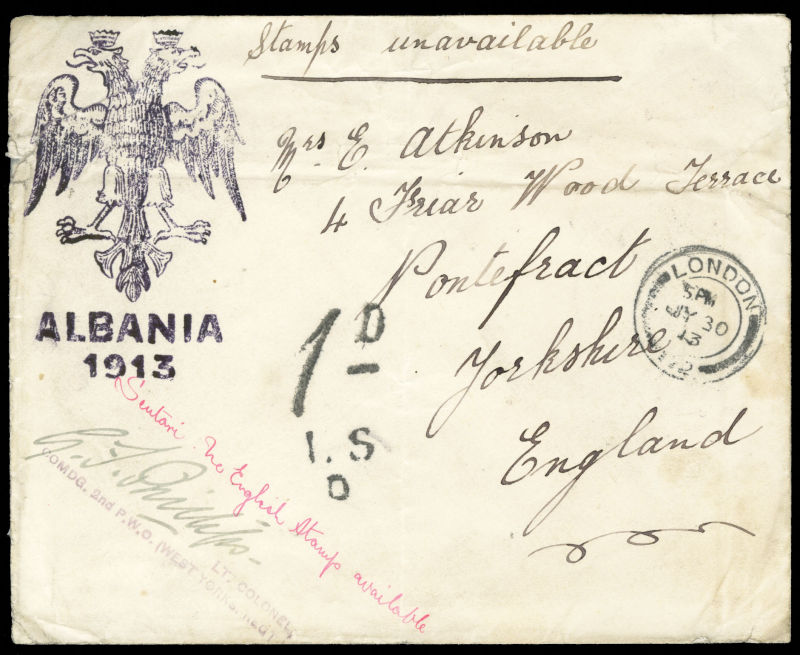 Stamps unavailable
Mrs. E. Atkinson
4 Friar Wood Terrace
Pontefract
Yorkshire
England
ALBANIA
1913
LONDON
5 PM
JY 30
13
1D
I.S
D
Scutari. No English Stamps available
G. F. Phillips
LT. COLONEL,
COMDG. 2nd P.W.O. (WEST YORKS. REGT